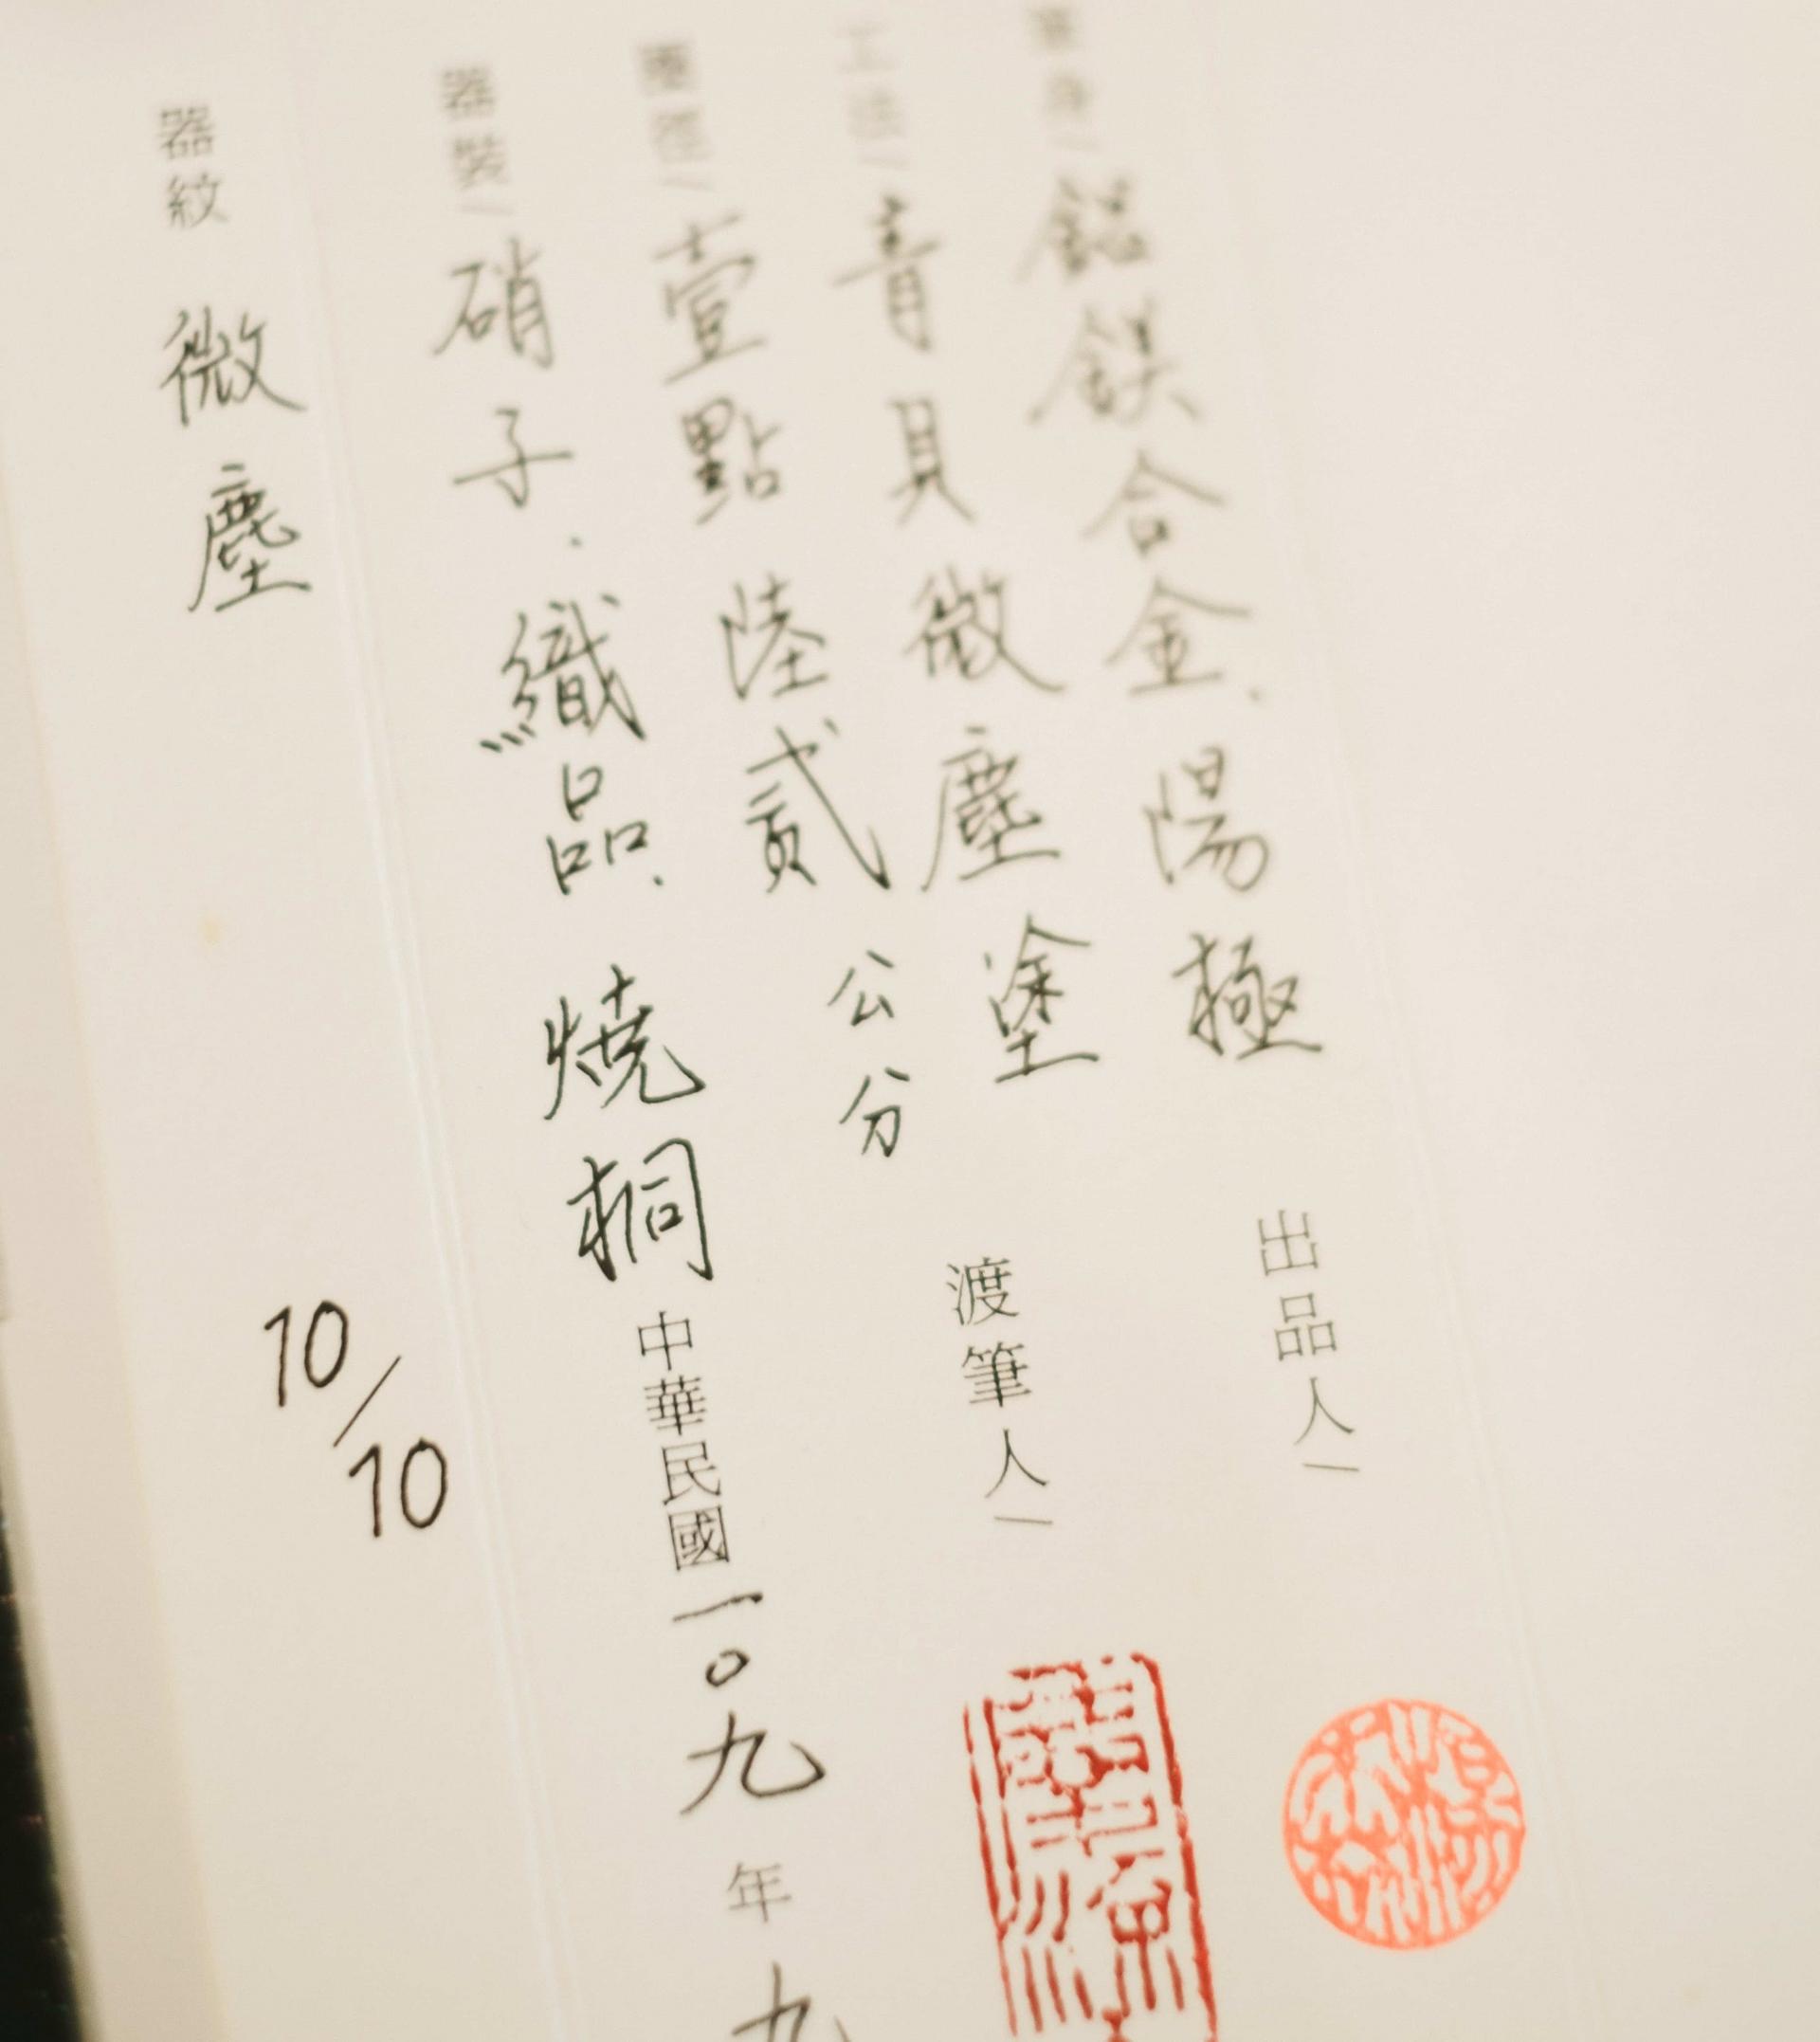 鎂合金、陽極
出品人|
工法|青貝微塵塗
渡筆人|
壹點陸貳公分
器裝|硝子.織品.燒桐
中華民國一〇九年九
器紋 微塵
10/10